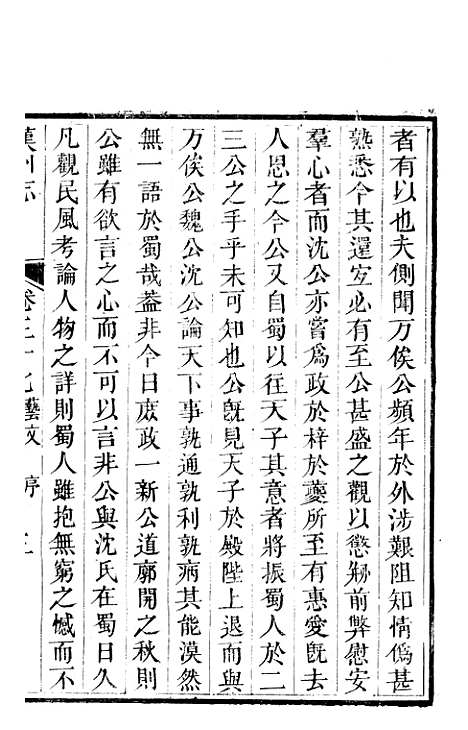 者有以也夫側聞万俟公頻年於外涉艱阻知情僞甚
熟悉今其還宜必有至公甚盛之觀以懲刱前弊慰安
羣心者而沈公亦嘗爲政於梓於夔所至有惠愛旣去
人思之今公又自蜀以往天子其意者將振蜀人於二
三公之手乎未可知也公旣見天子於殿陛上退而與
万俟公魏公沈公論天下事孰通孰利孰病其能漠然
無一語於蜀哉葢非今日庶政一新公道廓開之秋則
公雖有欲言之心而不可以言非公與沈氏在蜀日久
凡觀民風考論人物之詳則蜀人雖抱無窮之憾而不
漢州志 卷三十九藝文 序